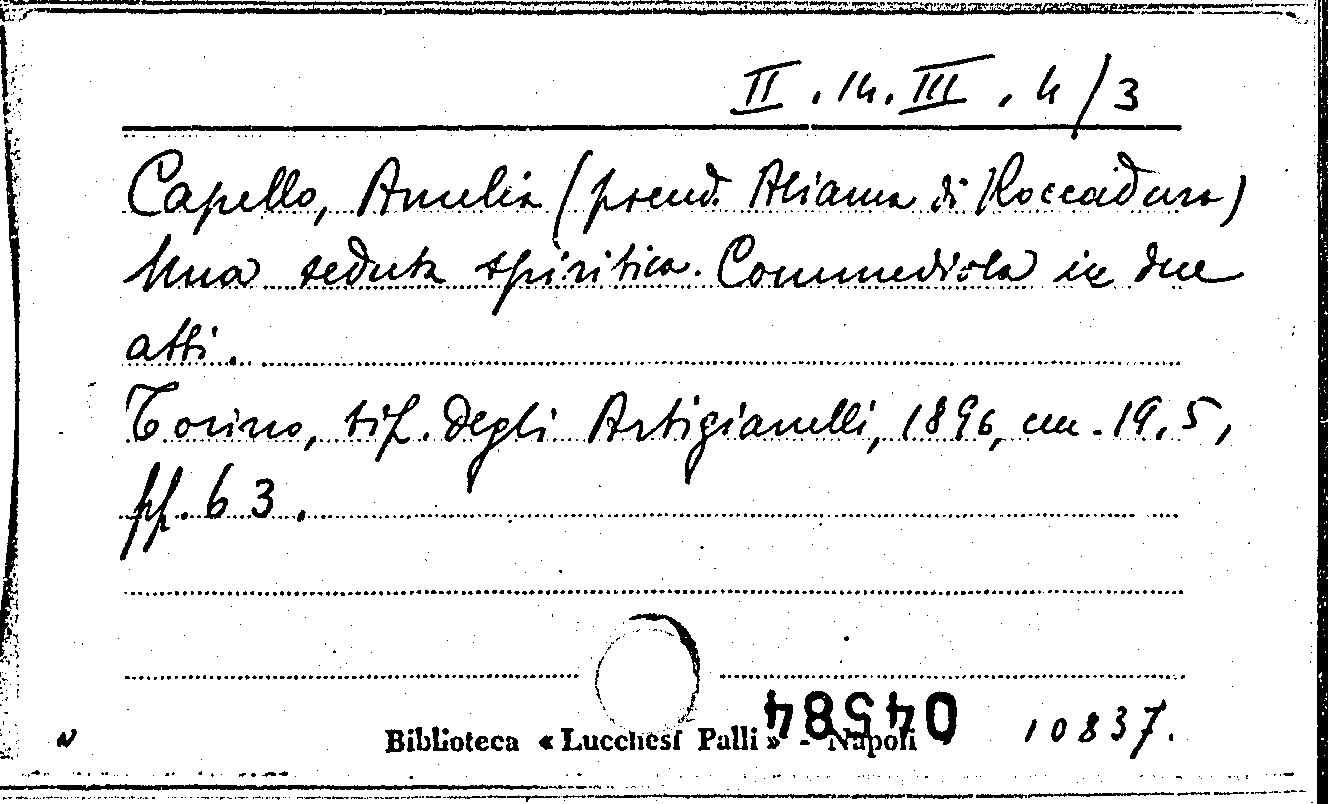 II.14.III.4/3
Capello, Amelia (pseud. Aliama di Roccadura)
Una seduta spiritica. Commediola in due
atti.
Torino, tip. degli Artigianelli, 1896, cm. 19,5,
pp. 63.
04584
Biblioteca « Lucchesi Palli » - Napoli 10837.